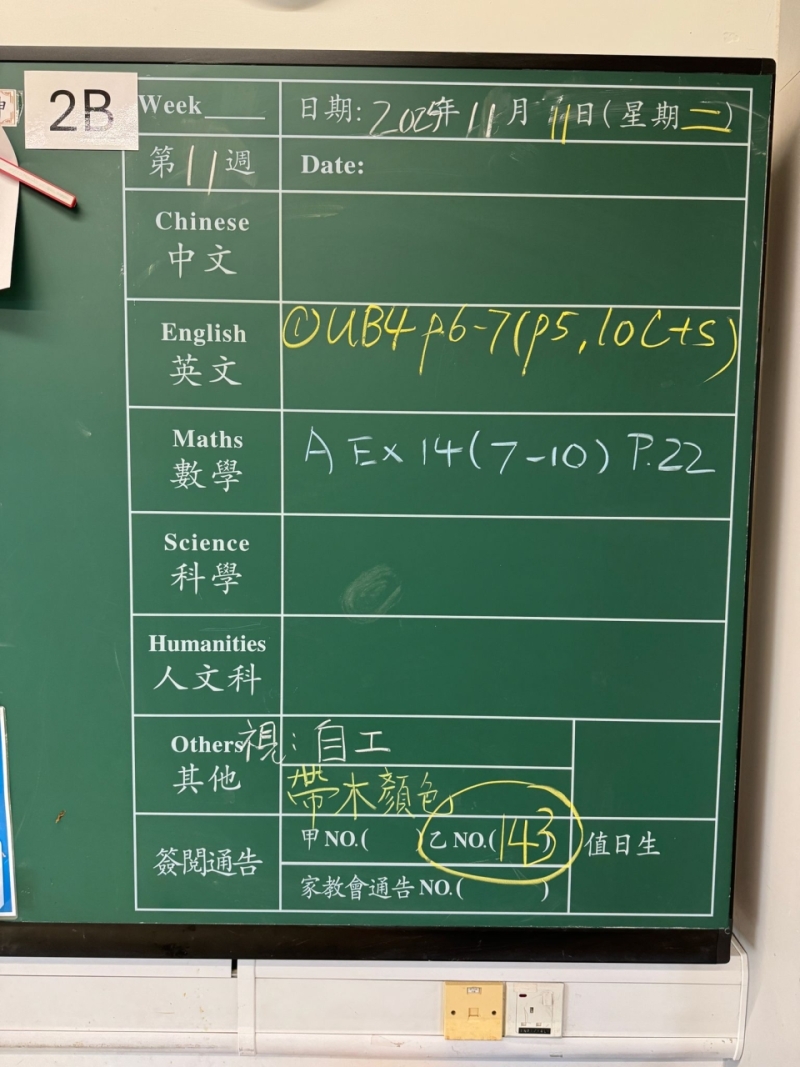 2B
Week
日期: 2025年 11月 11日(星期二)
第11週
Date:
Chinese
中文
English
英文
①UB4 p.6-7(p5,10C+S)
Maths
數學
A Ex 14(7-10) P.22
Science
科學
Humanities
人文科
Others
其他
視:自工
帶木顏色
簽閱通告
甲NO.( )乙NO.(143)
值日生
家教會通告NO.( )